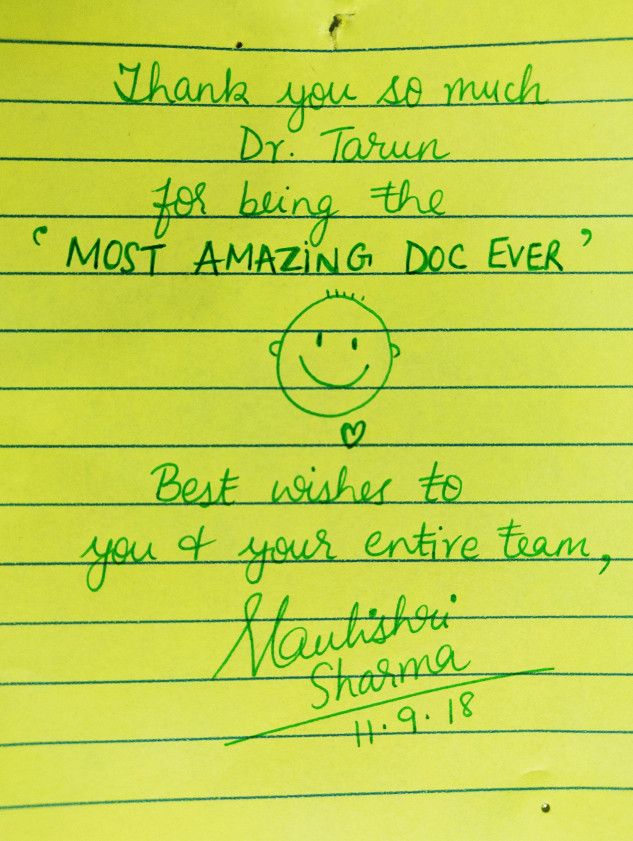 Thank you so much
Dr. Tarun
for being the
‘ MOST AMAZiNG DOC EVER ’
Best wishes to
you & your entire team,
Sharma
11.9.18